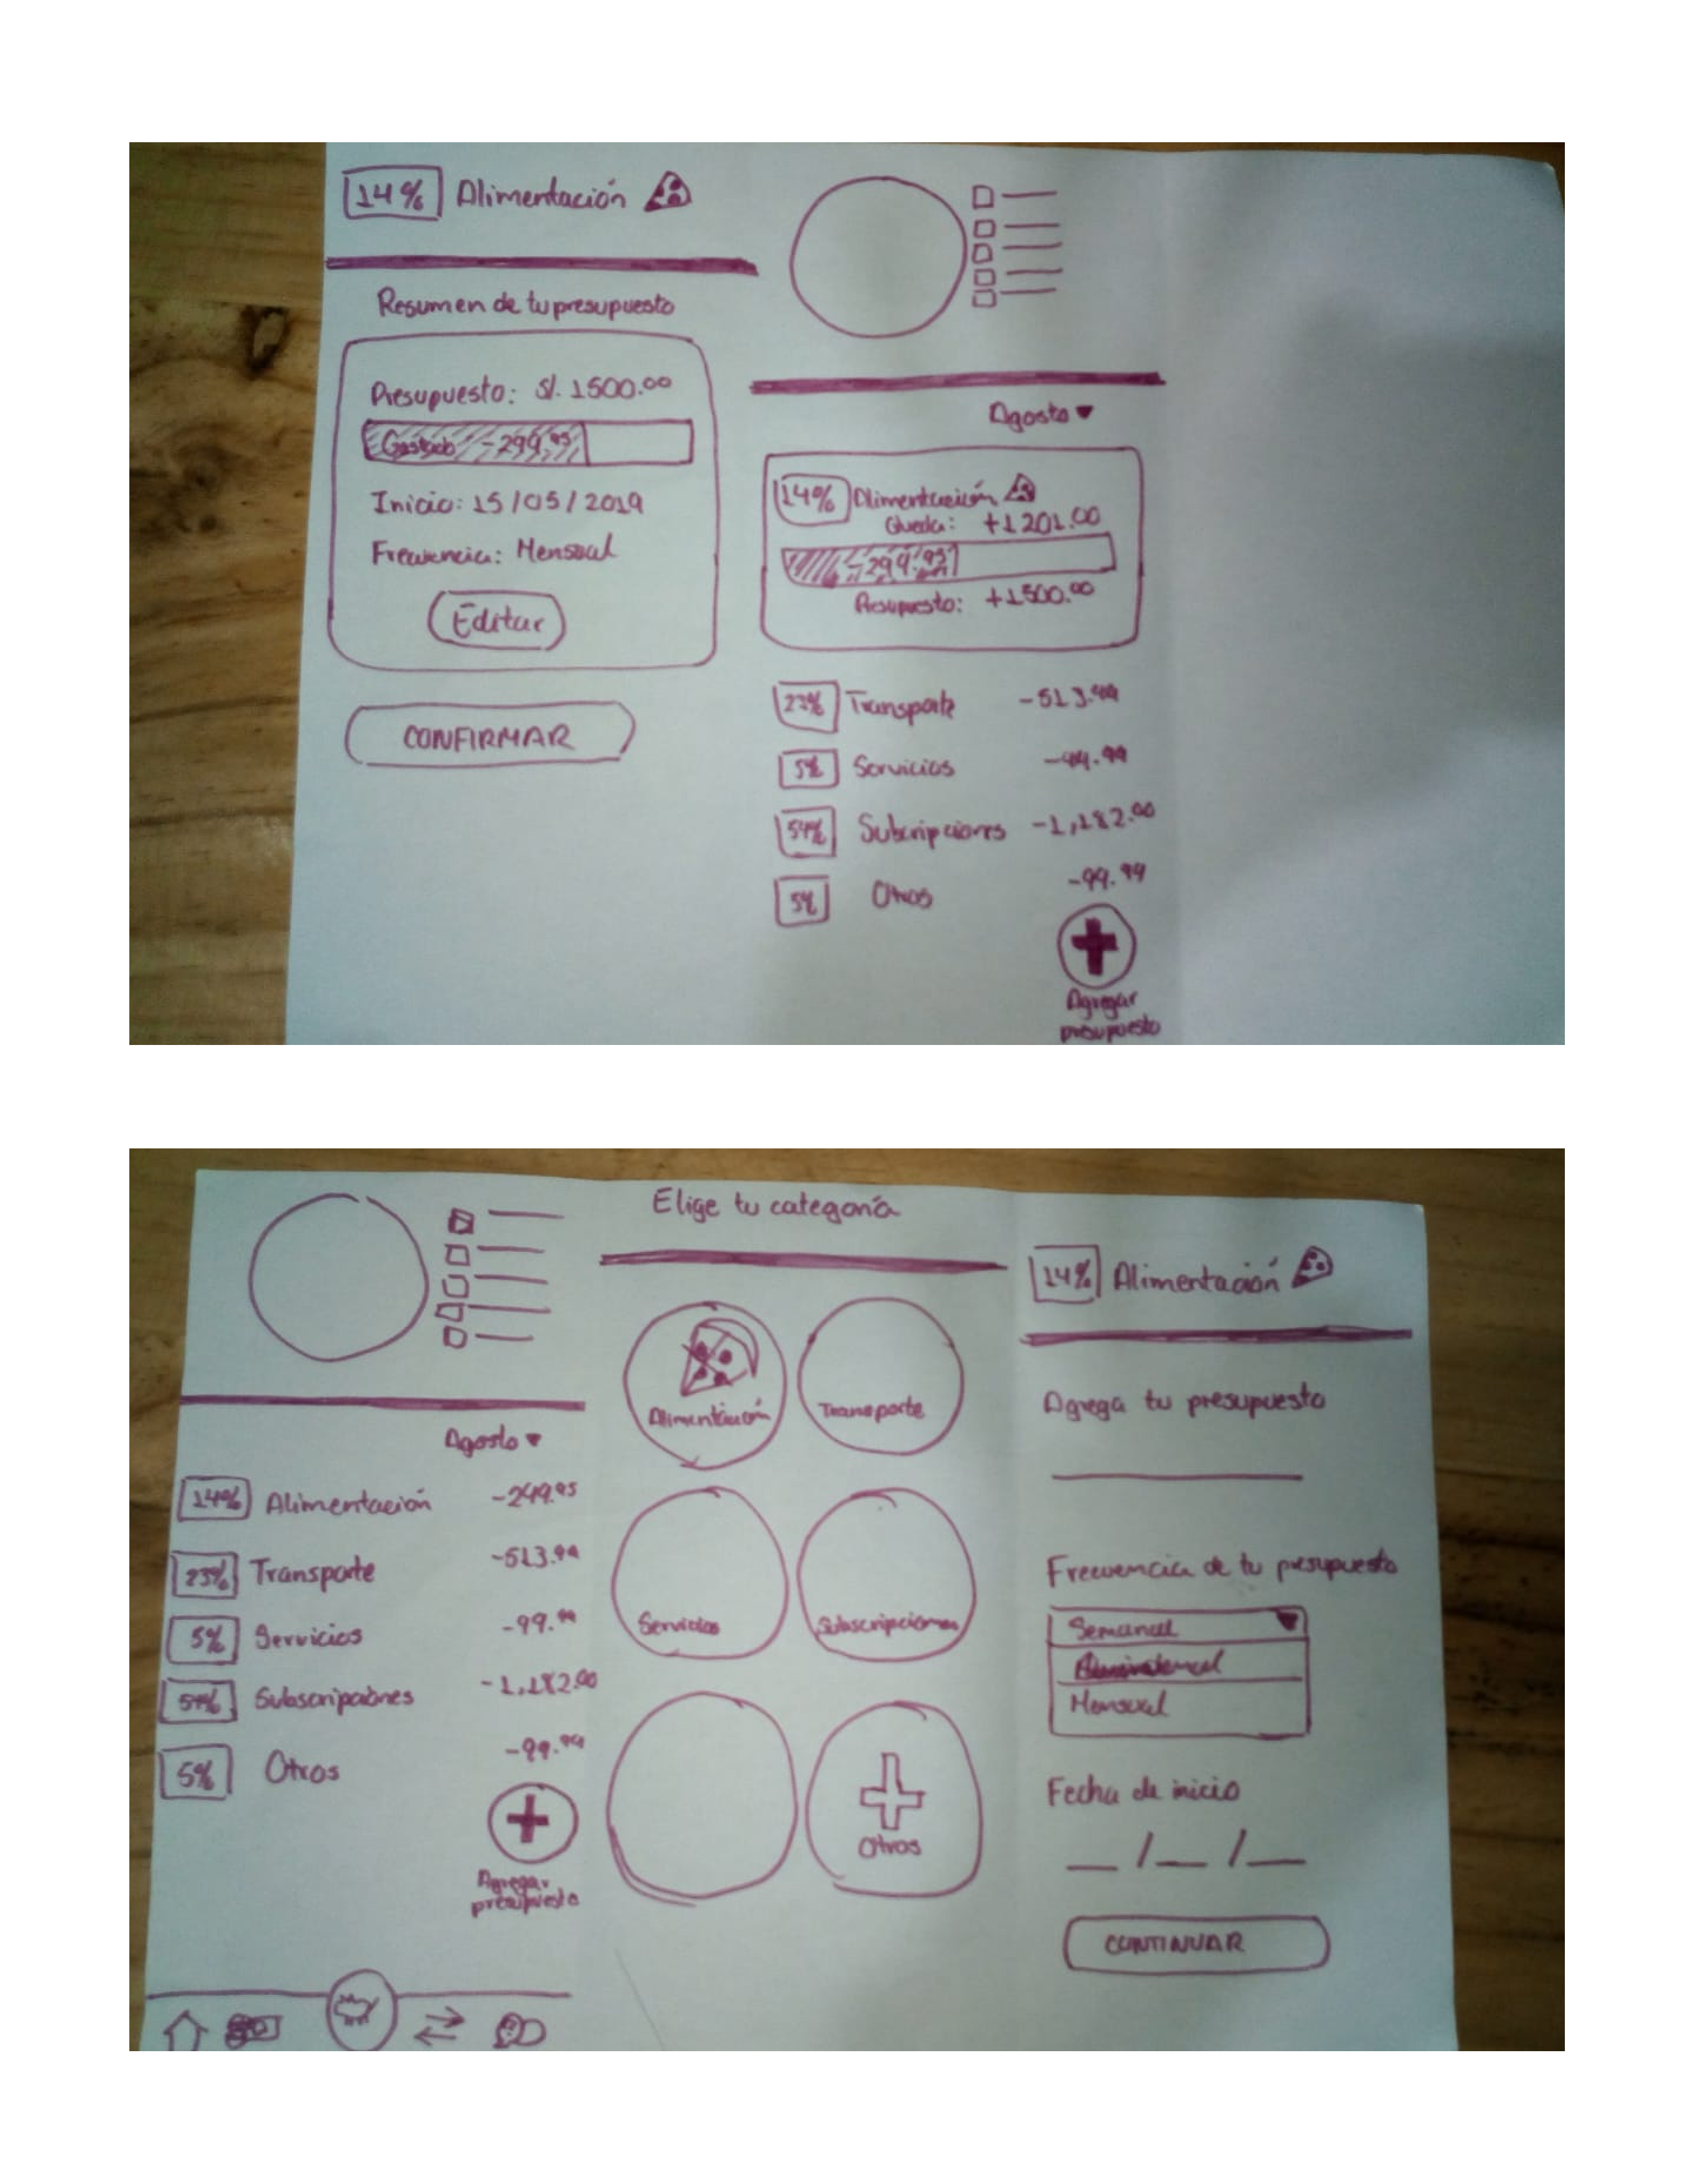 14% Alimentación
Resumen de tu presupuesto
Presupuesto: S/. 1500.00
Gastado -299.95
Inicio: 15/05/2019
Frecuencia: Mensual
Editar
CONFIRMAR
Agosto
14% Alimentación
Queda: +1201.00
-299.95
Presupuesto: +1500.00
23% Transporte -513.99
5% Servicios
54% Subscripciones -1,182.00
5% Otros -99.99
Agregar
presupuesto
Agosto
14% Alimentación -299.95
23% Transporte -513.99
5% Servicios -99.99
54% Subscripciones -1,182.00
5% Otros -99.99
Agregar
presupuesto
Elige tu categoría
Alimentación
Transporte
Servicios
Subscripciones
Otros
14% Alimentación
Agrega tu presupuesto
Frecuencia de tu presupuesto
Semanal
Mensual
Fecha de inicio
__/__/__
CONTINUAR